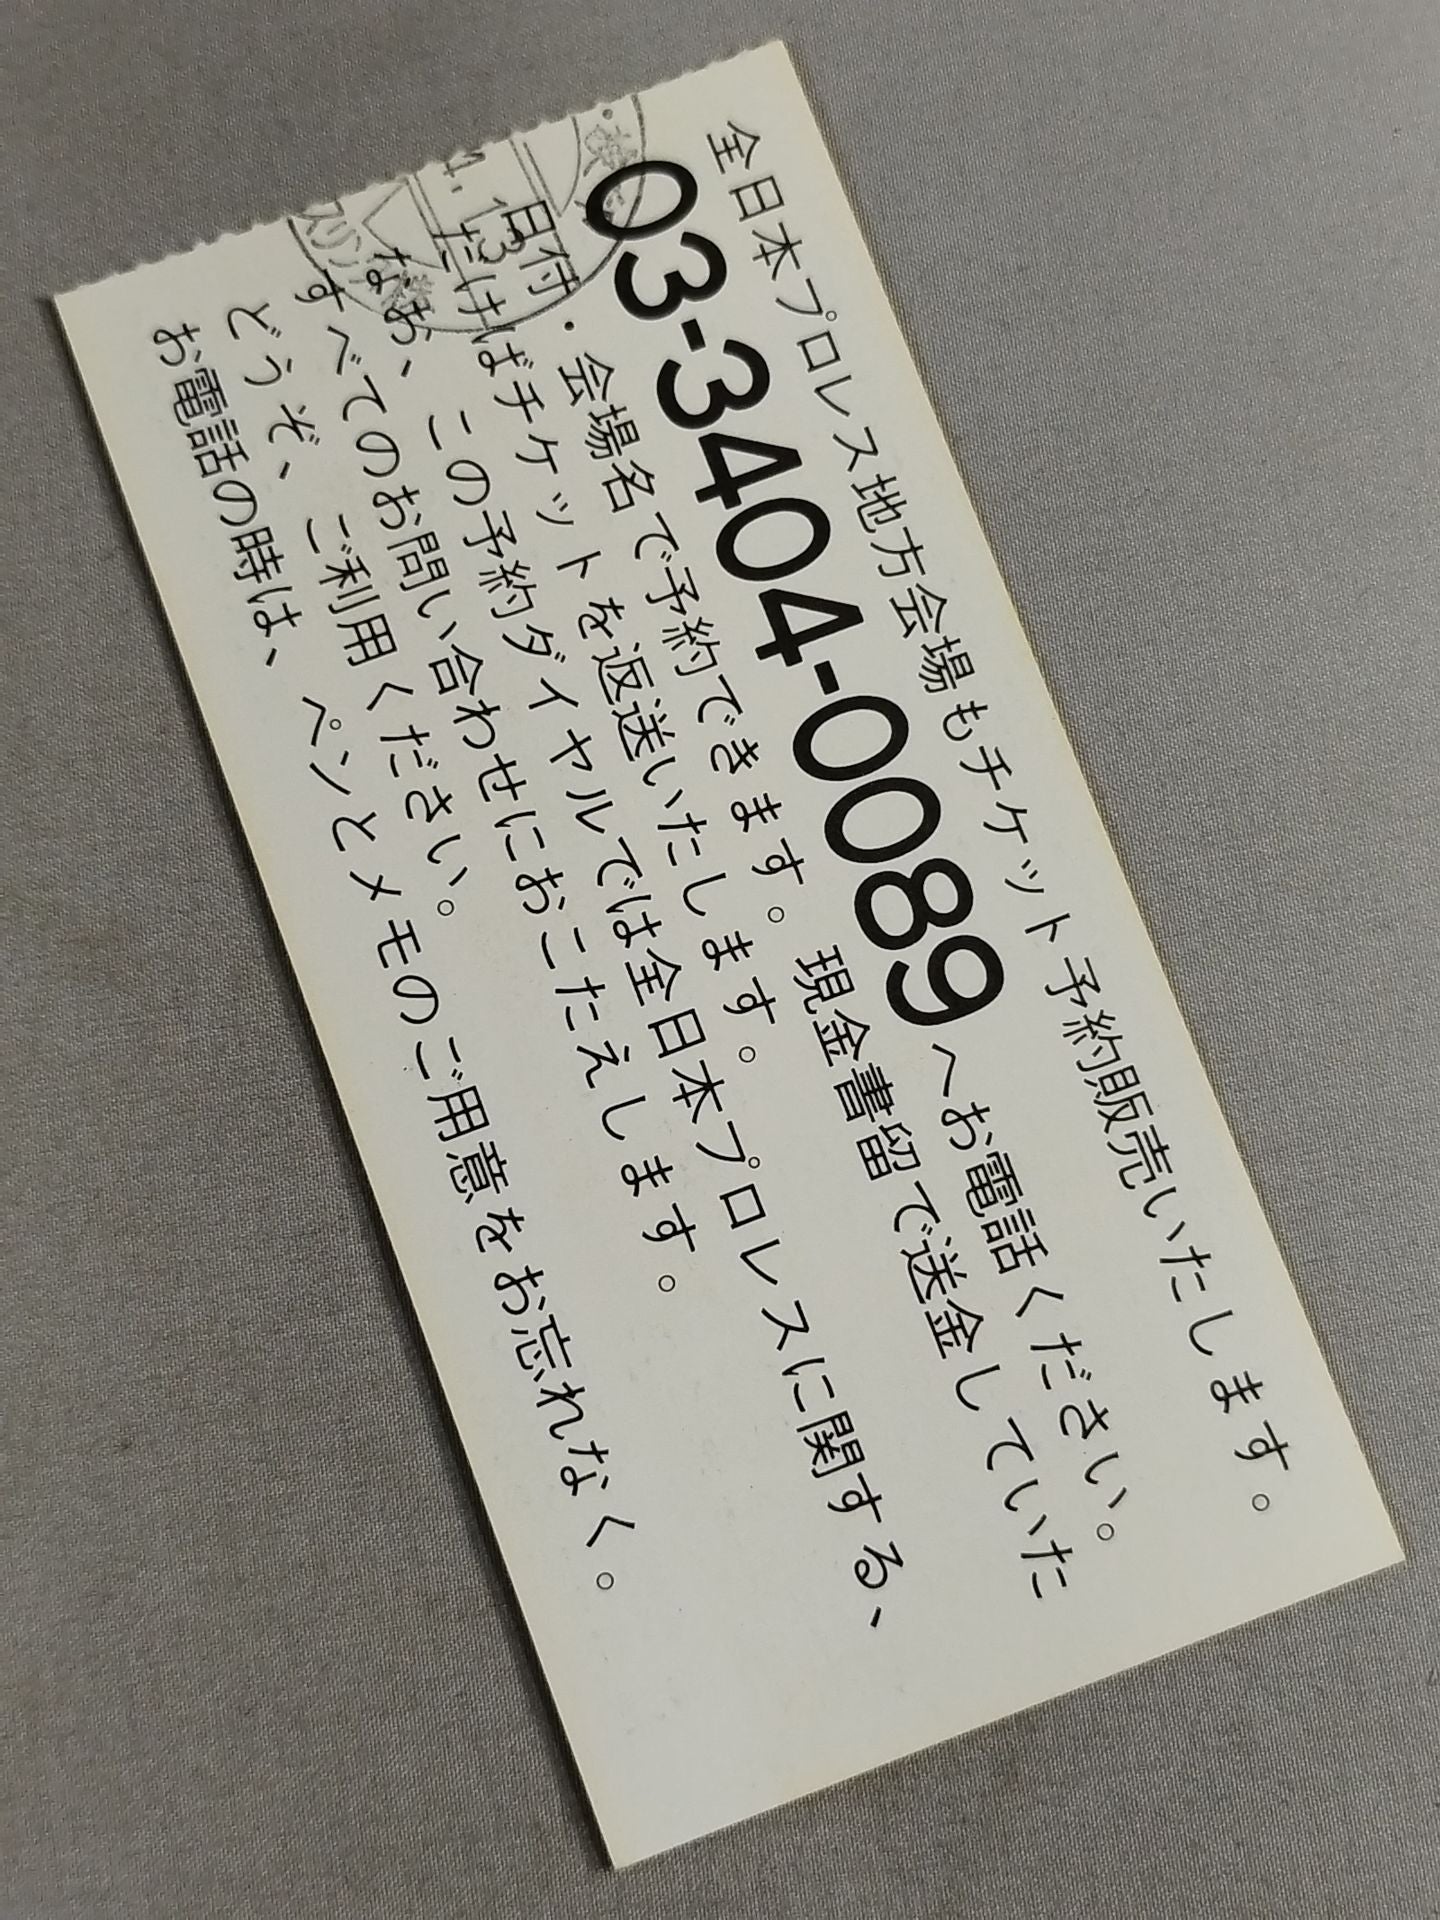 全日本プロレス地方会場もチケット予約販売いたします。
03-3404-0089へお電話ください。
日付・会場名で予約できます。現金書留で送金していた
だければチケットを返送いたします。
なお、この予約ダイヤルでは全日本プロレスに関する、
すべてのお問い合わせにおこたえします。
どうぞ、ご利用ください。
お電話の時は、ペンとメモのご用意をお忘れなく。